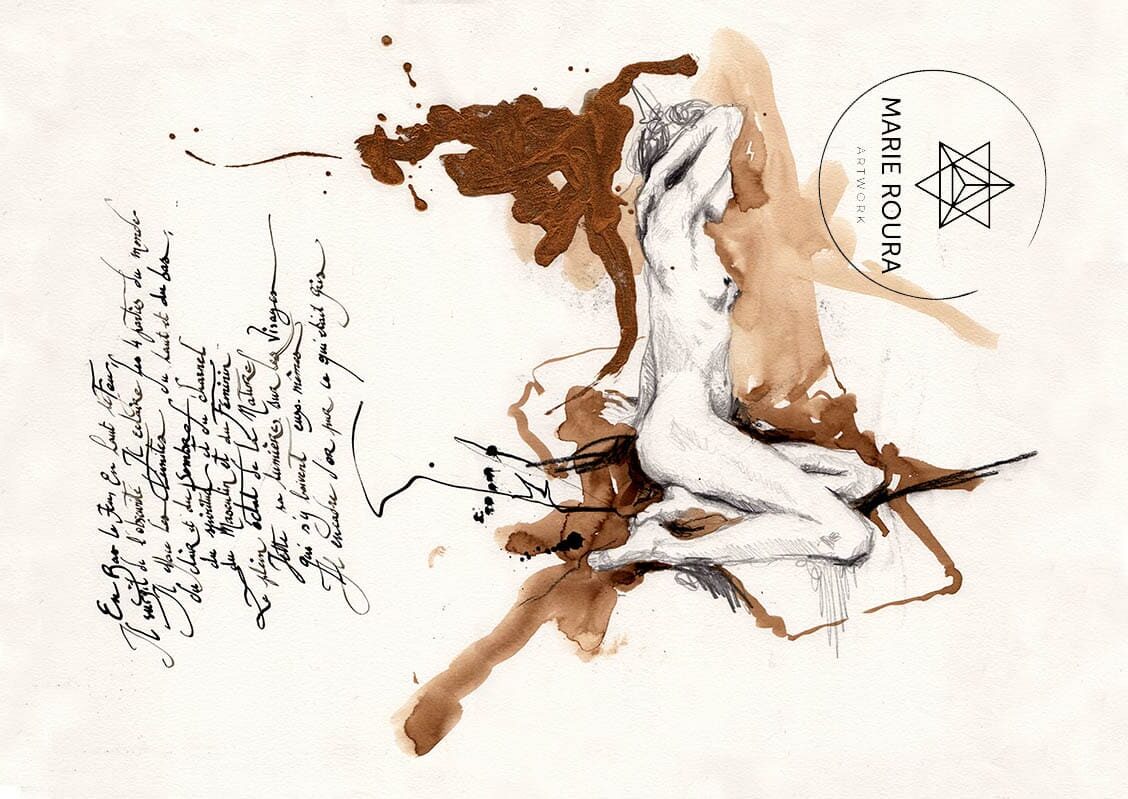 MARIE ROURA
ARTWORK
En Bas le Feu, En Haut le Feu,
Il surgit de l'obscurité Il éclaire les 4 parties du monde
Il trace les limites du haut et du bas,
du clair et du sombre
du spirituel et du charnel
du Masculin et du Féminin
Le plein éclat de la Nature
Jette sa lumière sur les Visages
qui s'y eux. mêmes
Il encadre d'or pur ce qui était gris